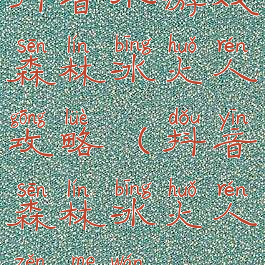 sēn lín bīng huǒ rén
森林冰火人
gōng lüè （ dǒu yīn
攻略（抖音
sēn lín bīng huǒ rén
森林冰火人